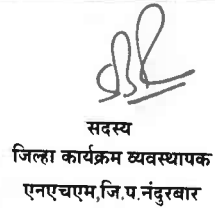 सदस्य
जिल्हा कार्यक्रम व्यवस्थापक
एनएचएम,जि.प.नंदुरबार